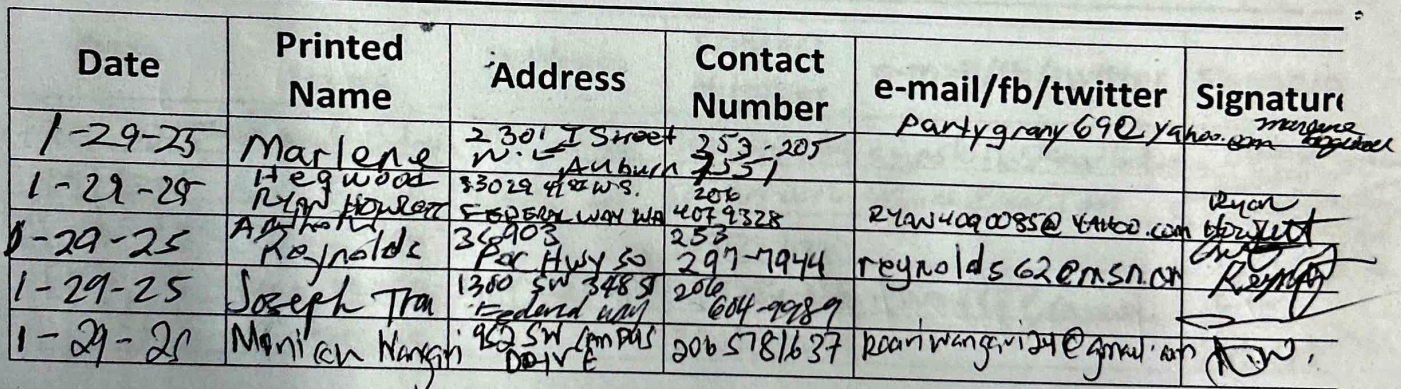 Date Printed Name Address Contact Number e-mail/fb/twitter Signature
1-29-25 Marlene Hegwood 2301 I Street Auburn 253-205 7551 partygrany690 yahoo.com marlene
1-29-25 RYAN HOWLETT 33029 WS. FEDERAL WAY WA 206 4079328 @ YAHOO.com Ryan Howlett
1-29-25 Reynolds 34903 Pac Hwy So 253 297-7944 reynolds62@msn.com
1-29-25 Joseph Tran 1300 SW 348 St Federal way 206 604-9989
1-29-25 952 SW Campus DRIVE 206 5781637 @gmail.com